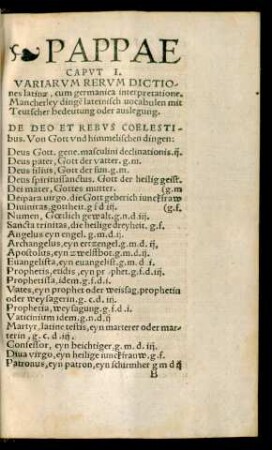 PAPPAE
CAPVT I.
VARIARVM RERVM DICTIO-
nes latinæ, cum germanica interpretatione.
Mancherley dingē lateinisch vocabulen mit
Teutscher bedeutung oder auslegung.
DE DEO ET REBVS COELESTI-
bus. Von Gott vnd himmelischen dingen:
Deus Gott. gene. masculini declinationis.ij.
Deus pater, Gott der vatter. g.m.
Deus filius, Gott der sun. g.m.
Deus spiritussanctus. Gott der heilig geist.
Dei mater, Gottes mutter. (g.m
Deipara uirgo. die Gott geberich iunckfraw
Diuinitas, gottheit. g f d iij. (g.f.
Numen, Gœtlich gewalt. g.n.d.iij.
Sancta trinitas, die heilige dreyheit. g.f.
Angelus eyn engel. g.m.d.ij.
Archangelus, eyn ertzengel. g.m.d. ij,
Apostolus, eyn zwelffbot. g.m.d.ij.
Euangelista, eyn euangelist. g.m.d i.
Prophetis, etidis, eyn prophet. g.f.d.iij.
Prophetissa, idem. g.f.d.i.
Vates, eyn prophet oder weissag, prophetin
oder weysagerin. g. c.d. iij.
Prophetia, weysagung. g.f.d.i.
Vaticinium idem. g.n.d.ij
Martyr, latine testis, eyn marterer oder mar-
terin, g. c.d.iij.
Confessor, eyn beichtiger. g.m. d. iij.
Diua virgo, eyn heilige iunckfraw. g.f.
Patronus, eyn patron, eyn schirmher g m d ij
B